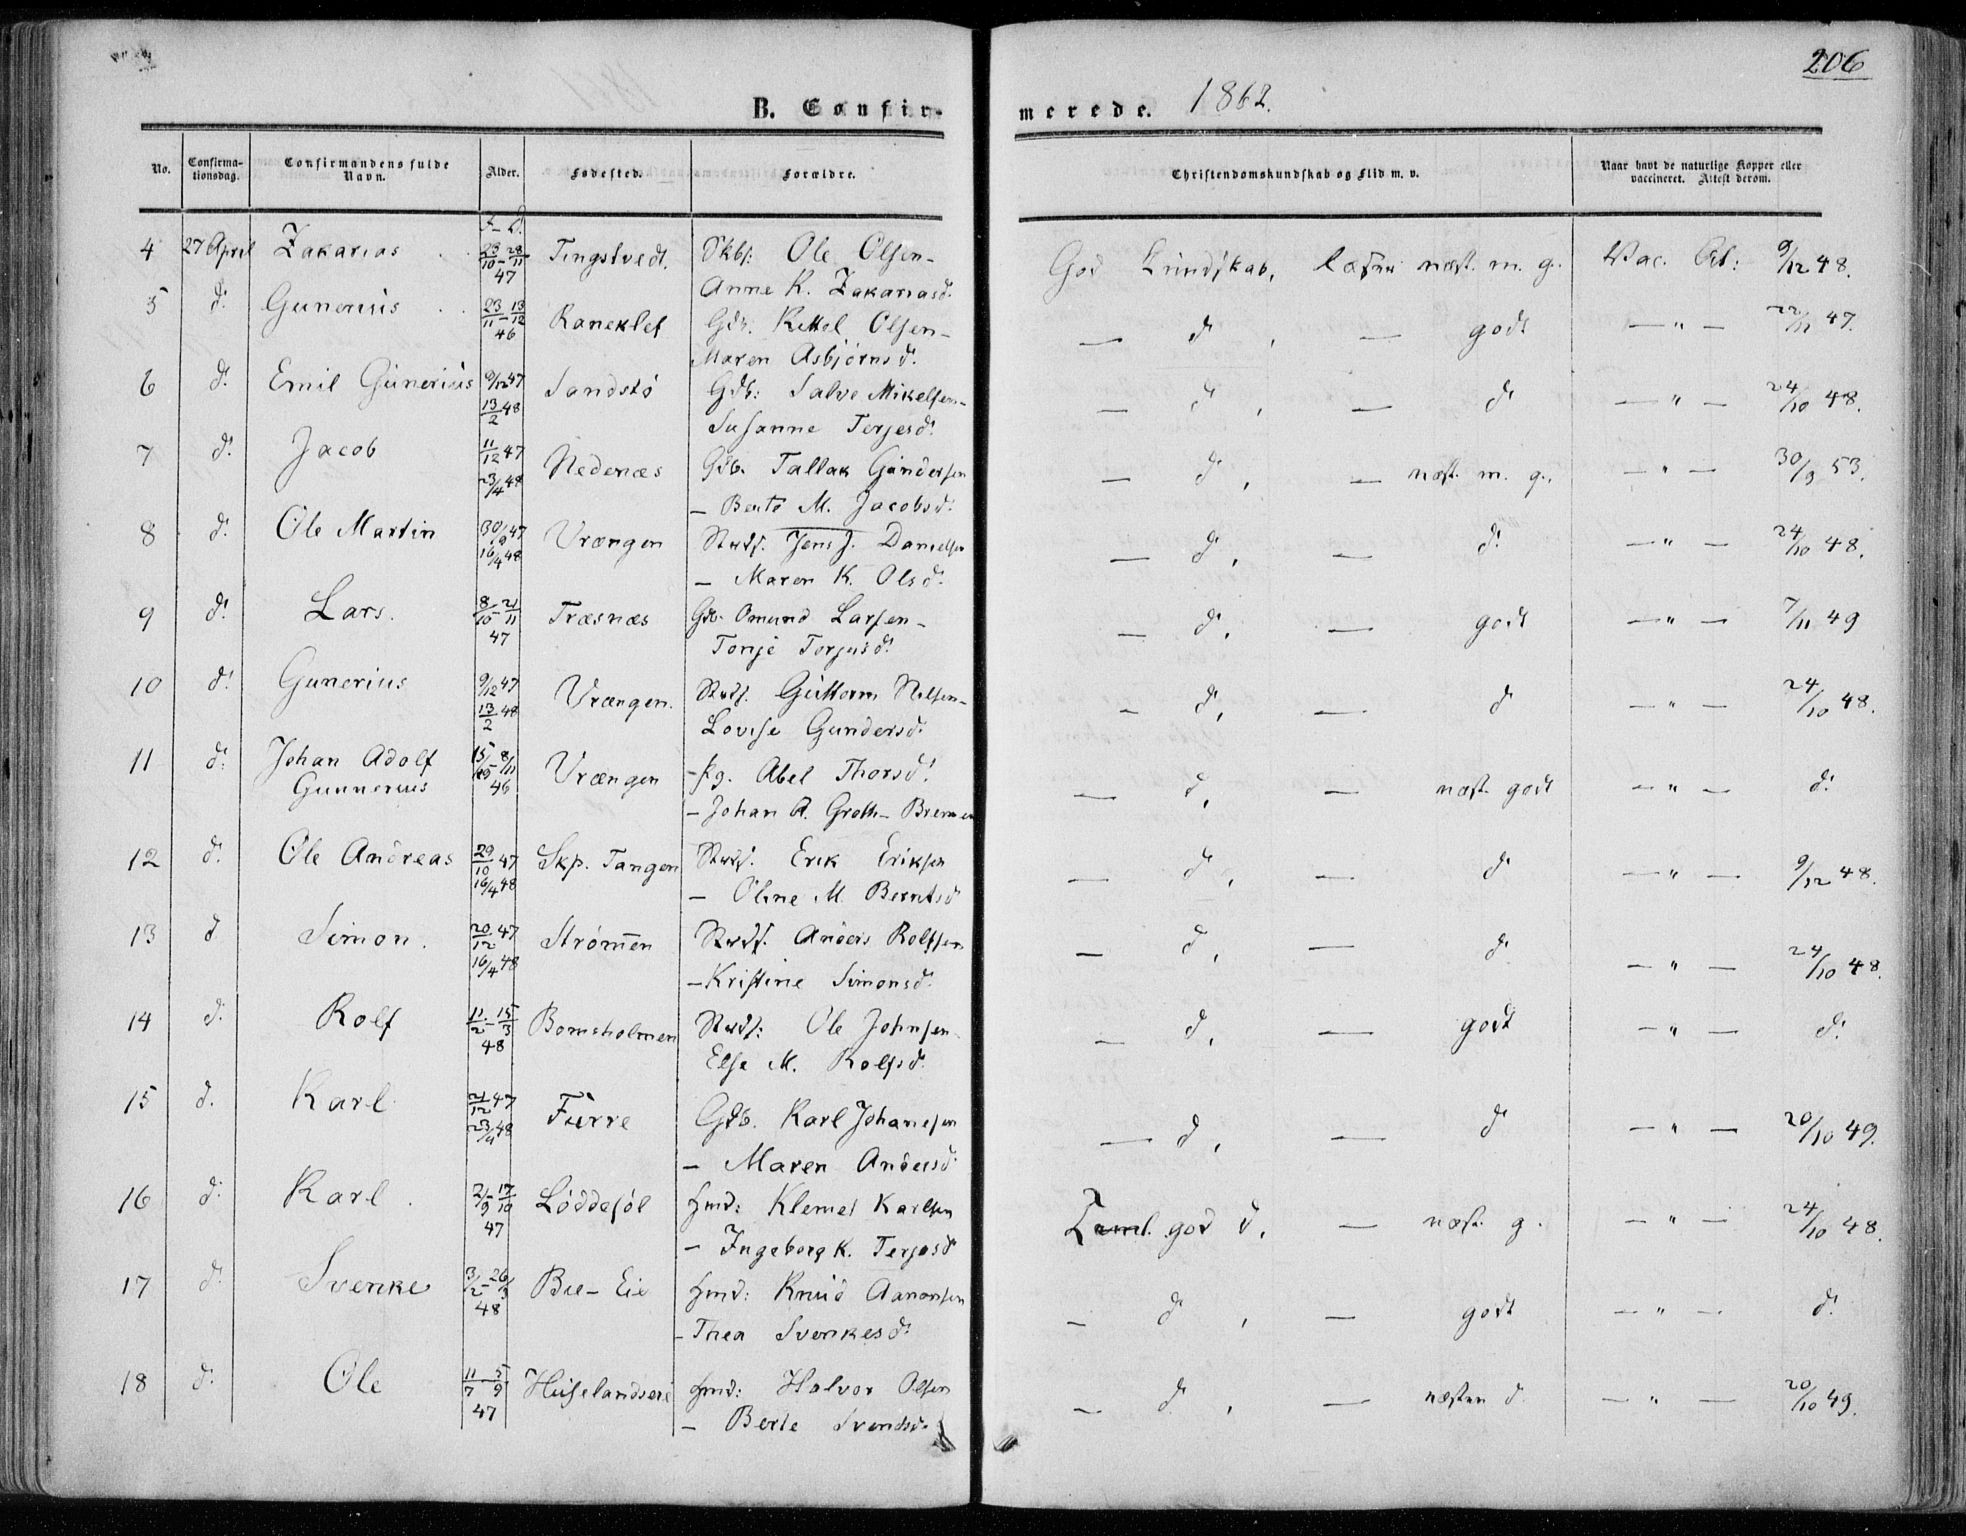 206
B. Confirmerede. 1862.
No. Confirmationsdag. Confirmandens fulde Navn. Alder. Fødested. Forældre. Christendomskundskab og Flid m. v. Naar havt de naturlige Kopper eller vaccineret. Attest derom.
F - D.
4 27 April Zakarias 23/10 - 28/11 47 Tingstvedt. Skbf: Ole Olsen - God Kundskab, læser næst. m. g. Vac. At: 9/12 48.
Anne K. Zakariasd.
5 d. Gunerius 23/11 - 13/12 46 Raneklef Gdb. Kittel Olsen - — d, — godt — " — 22/11 47.
Maren Asbjørnsd.
6 d. Emil Gunerius 9/12 47 13/2 48 Sandstø Gdb: Salve Mikelsen - — d, — d — " — 24/10 48.
Susanne Terjesd.
7 d. Jacob 11/12 47 23/4 48 Nedenæs Gdb. Tallak Gundersen — d, — næst. m. g. — " — 30/9 53.
- Berte M. Jacobsd.
8 d. Ole Martin 30/9 47 16/4 48 Vrængen Strdf. Jens J. Danielsen — d, — d. — " — 24/10 48.
- Maren K. Olsd.
9 d. Lars. 8/10 - 21/11 47 Træsnæs Gdb. Omund Larsen - — d, — godt — " — 7/11 49
Tonje Torjusd.
10 d. Gunerius 9/12 47 13/2 48 Vrængen. Strdf. Guttorm Nilsen - — d, — d — " — 24/10 48.
Lovise Gundersd.
11 d. Johan Adolf 15/10 - 8/11 46 Vrængen - pg. Abel Thorsd. — d, — næst. godt — " — d.
Gunnerius - Johan A. Groth - Bremen
12 d. Ole Andreas 29/10 47 16/4 48 Skp. Tangen Strdf. Erik Eriksen — d, — d — " — 9/12 48.
- Oline M. Berntsd
13 d Simon. 20/12 47 16/4 48 Strømen Strdf. Anders Rolfsen — d, — d. — " — 24/10 48.
- Kristine Simonsd.
14 d. Rolf 11/2 - 15/3 48 Bomsholmen Strdf: Ole Johnsen - — d, — godt — " — d.
Else M. Rolfsd.
15 d. Karl 21/12 47 23/4 48 Furre Gdb. Karl Johanesen — d, — d — " — 20/10 49.
- Maren Andersd.
16 d. Karl. 2/9 - 17/10 47 Løddesøl Hmd: Klemet Karlsen god d, — næst. g. — " — 24/10 48.
- Ingeborg K. Terjesd
17 d. Svenke 3/2 - 26/3 48 Bie - Eie Hmd: Knud Aanonsen — d, — godt — " — d.
- Thea Svenkesd.
18 d. Ole 11/7 - 5/9 47 Huselandseie Hmd: Halvor Olsen — d, — næsten d. — " — 20/10 49.
- Berte Svendsd.